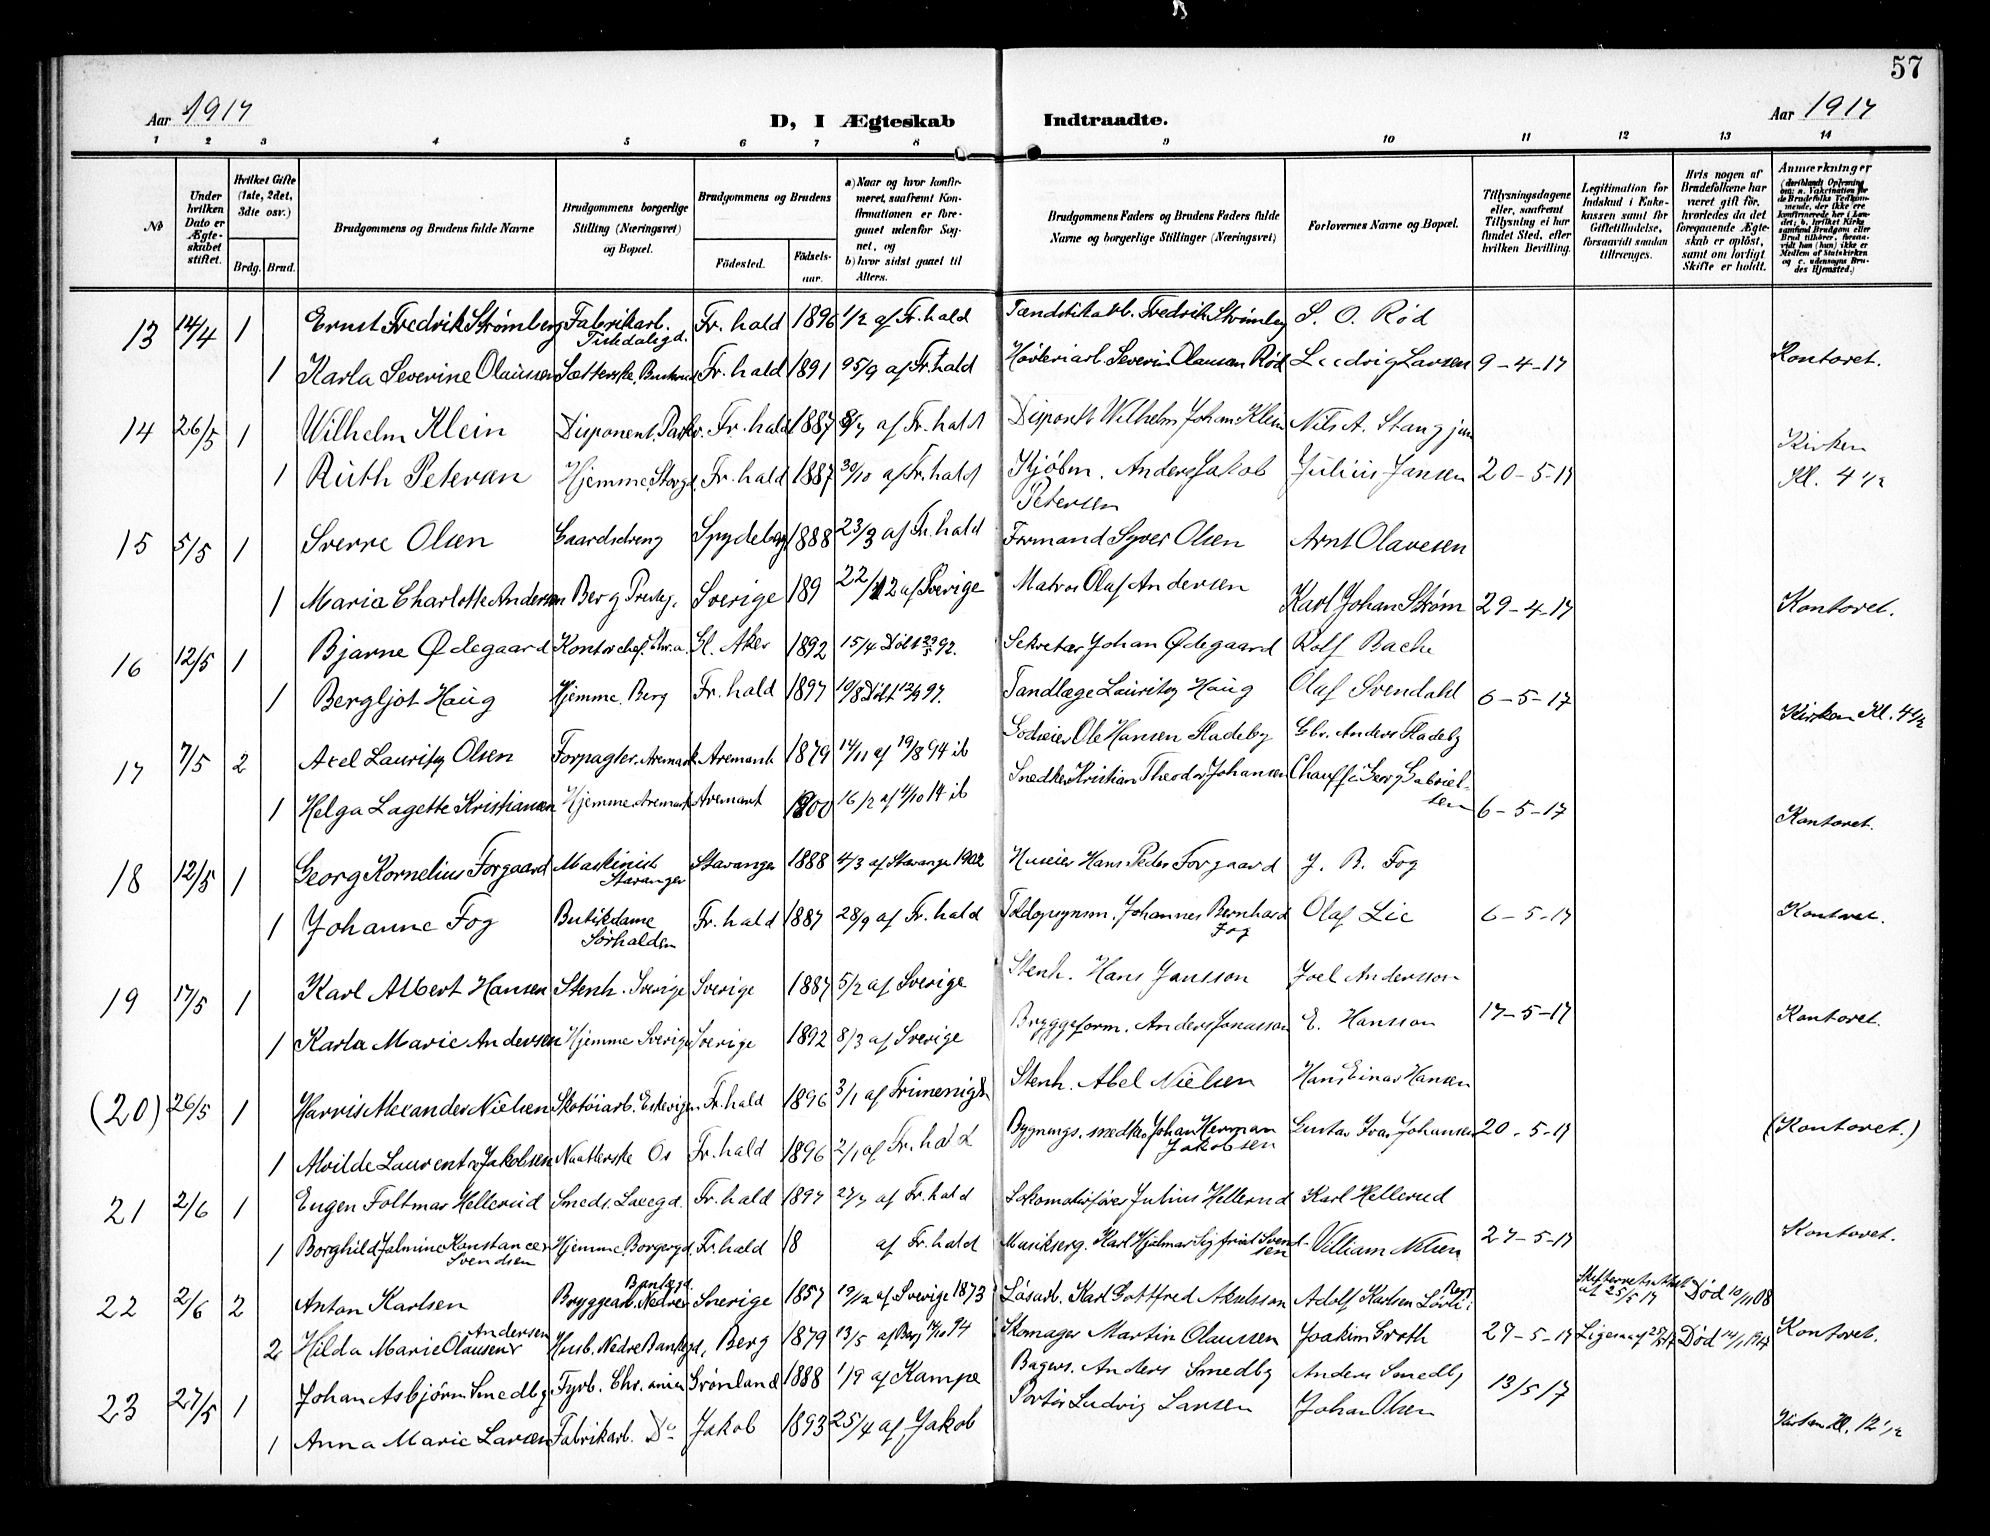 57
Aar 1917
D, I Ægteskab Indtraadte.
Aar 1917
1 2 3 4 5 6 7 8 9 10 11 12 13 14
No
Under hvilken Dato er Ægteskabet stiftet.
Hvilket Gifte (1ste, 2det, 3die osv.)
Brdg. Brud.
Brudgommens og Brudens fulde Navne
Brudgommens borgerlige Stilling (Næringsvei) og Bopæl.
Brudgommens og Brudens
Födested. Födselsaar.
a) Naar og hvor konfirmeret, saafremt Konfirmationen er foregaaet udenfor Sognet, og
b) hvor sidst gaaet til Alters.
Brudgommens Faders og Brudens Faders fulde Navne og borgerlige Stillinger (Næringsvei)
Forlovernes Navne og Bopæl.
Tillysningsdagene eller, saafremt Tillysning ei har fundet Sted, efter hvilken Bevilling.
Legitimation for Indskud i Enkekassen samt for Giftetilladelse, forsaavidt saadan tiltrænges.
Hvis nogen af Brudefolkene har været gift för, hvorledes da det foregaaende Ægteskab er oplöst, samt om lovligt Skifte er holdt.
Anmærkninger
13 14/4 1 Ernst Fredrik Strømberg Fabrikarb. Tistedalsgd. Fr.hald 1896 1/2 af Fr.hald Fredrik Strømberg S. O. Rød
1 Karla Severine Olaussen Bueskud Fr.hald 1891 af Fr.hald Høvleriarb. Severin Olaussen Rød Ludvig Larsen 9-4-17 Kontoret.
14 26/5 1 Wilhelm Klein Disponent, Fr.hald 1887 8/7 af Fr.hald Disponent Wilhelm Johan Klein Nils A. Stang
1 Ruth Petersen Hjemme, Storgd. Fr.hald 1887 30/10 af Fr.hald Kjøbm. Anders Jakob Petersen Julius Jansen 20-5-17 Kirken Kl. 4 1/2
15 5/5 1 Sverre Olsen Gaardsdreng Spydeberg 1888 23/3 af Fr.hald Formand Syver Olsen Arnt Olavesen
1 Maria Charlotte Andersen Berg Prestg. Sverige 189 22/12 af Sverige Matros Olaf Andersen Karl Johan Strøm 29-4-17 Kontoret.
16 12/5 1 Bjarne Ødegaard Kontorchef, Chr.a. Gl. Aker 1892 15/4 Døbt 29/5 92. Sekretær Johan Ødegaard Rolf Bache
1 Bergljot Haug Hjemme. Berg Fr.hald 1897 10/8 Døbt 12/9 97. Tandlæge Lauritz Haug Olaf Svendahl 6-5-17 Kirken Kl. 4 1/2
17 7/5 2 Axel Lauritz Olsen Forpagter. Aremark Aremark 1879 14/11 af 19/8 94 ib Godseier Ole Hansen Fladeby Gbr. Anders Fladeby
1 Helga Lagette Kristiansen Hjemme Aremark Aremark 1900 16/2 af 4/10 14 ib Snedker Kristian Theodor Johansen Chauff. Georg Gabrielsen 6-5-17 Kontoret.
18 12/5 1 Georg Kornelius Forgaard Maskinist Stavanger Stavanger 1888 4/3 af Stavange 1902 Huseier Hans Peder Forgaard J. B. Fog
1 Johanne Fog Butikdame Sørhalden Fr.hald 1887 28/9 af Fr.hald Toldopsynsm. Johannes Bernhard Fog Olaf Lie 6-5-17 Kontoret.
19 17/5 1 Karl Albert Hansen Stenh. Sverige Sverige 1887 5/2 af Sverige Stenh. Hans Jansson Joel Andersson
1 Karla Marie Andersen Hjemme Sverige Sverige 1892 8/3 af Sverige Bryggeform. Anders Jonasson E. Hansson 17-5-17 Kontoret.
(20) 26/5 1 Harris Alexander Nielsen Skotøiarb. Fr.hald 1896 3/1 af Frimenigh Stenh. Abel Nielsen Hans Einar Hansen
1 Alvilde Laurentze Jakobsen Naatlerske Os Fr.hald 1896 2/1 af Fr.hald Bygnings.snedker Johan Herman Jakobsen Gustav Ivar Johansen 20-5-17 (Kontoret.)
21 2/6 1 Eugen Foltmar Hellerud Smed. Fr.hald 1897 27/7 af Fr.hald Lokomotivfører Julius Hellerud Karl Hellerud
1 Borghild Jalmine Konstance Svendsen Hjemme. Borgergd. Fr.hald 18 af Fr.hald Musikserg. Karl Hjalmar Sigfried Svendsen William Nilsen 27-5-17 Kontoret.
22 2/6 2 Anton Karlsen Bryggearb. Nedre Bankegd. Sverige 1857 19/12 af Sverige 1873 Løsarb. Karl Gottfred Akselsson Adolf Karlsen Skifteretsattest af 25/5 17 Død 10/11 08
2 Hilda Marie Olausen Andersen Husb. Nedre Bankegd, Berg 1879 13/5 af Berg 14/10 94 Skomager Martin Olaussen Joakim Groth 27-5-17 Ligesaa af Død 14/1 1917 Kontoret.
23 27/5 1 Johan Asbjørn Smedby Fyrb. Chr.ania Grønland 1888 1/9 af Kampe Bagers. Anders Smedby Anders Smedby 13/5 17
1 Anna Marie Larsen Fabrikarb. Do Jakob 1893 25/4 af Jakob Portør Ludvig Larsen Johan Olsen Kirken Kl. 12 1/2